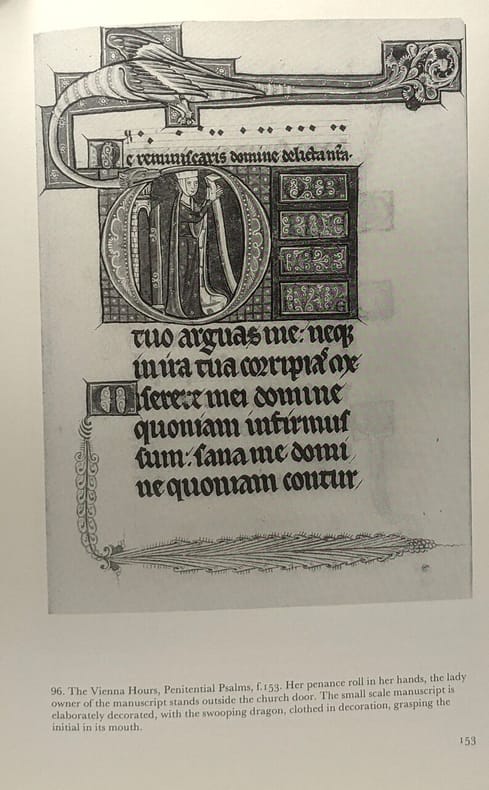 Ne reminiscaris domine delicta nr̄a.
D
tuo arguas me: neqꝫ
in ira tua corripiaˢ me
Miserere mei domine
quoniam infirmus
sum: sana me domi
ne quoniam contur
96. The Vienna Hours, Penitential Psalms, f.153. Her penance roll in her hands, the lady
owner of the manuscript stands outside the church door. The small scale manuscript is
elaborately decorated, with the swooping dragon, clothed in decoration, grasping the
initial in its mouth.
153